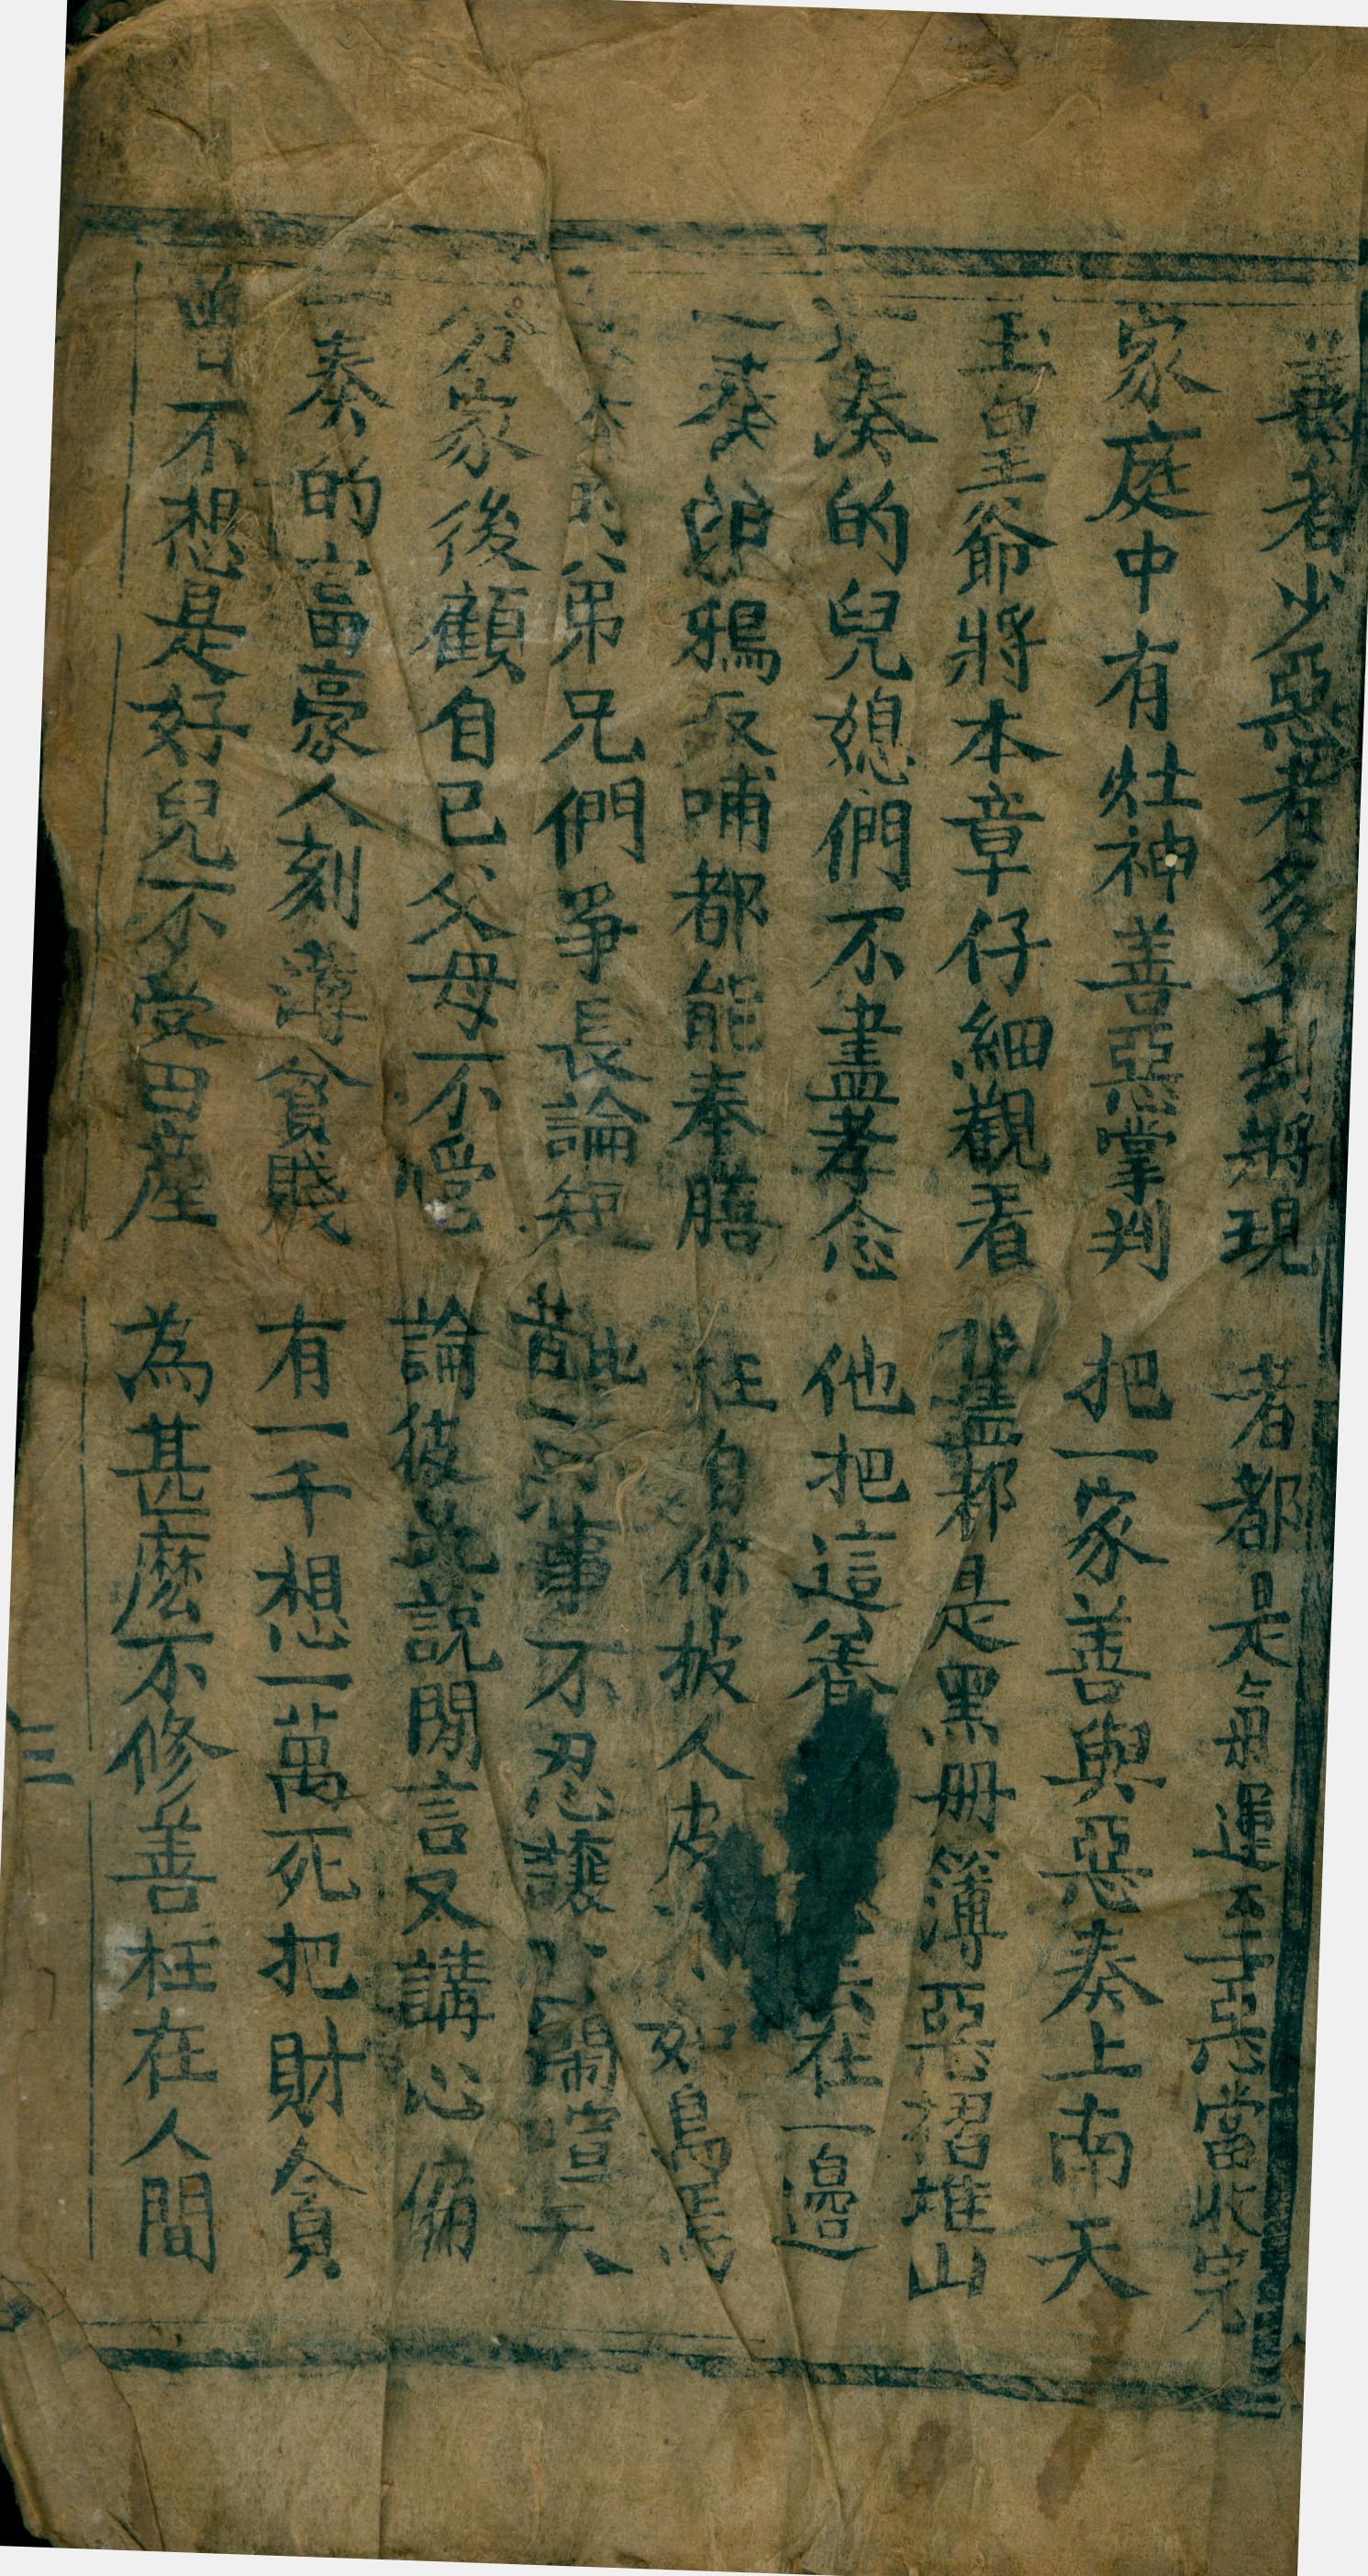 善者少惡者多十劫將現 者都是氣運至惡當收完
家庭中有灶神善惡掌判 把一家善與惡奏上南天
玉皇爺將本章仔細觀看 盡都是黑册簿惡摺堆山
一奏的兒媳們不盡孝念 他把這養 在一邊
一奏 鴉反哺都能奉膳 枉自你披人皮不如鳥
弟兄們爭長論短 些 事不忍讓 鬧喧天
分家後顧自己父母不管 論彼此説閒言又講心偏
一奏的富豪人刻薄貧賤 有一千想一萬死把財貪
曾不想是好兒不受田產 為甚麼不修善枉在人間
三